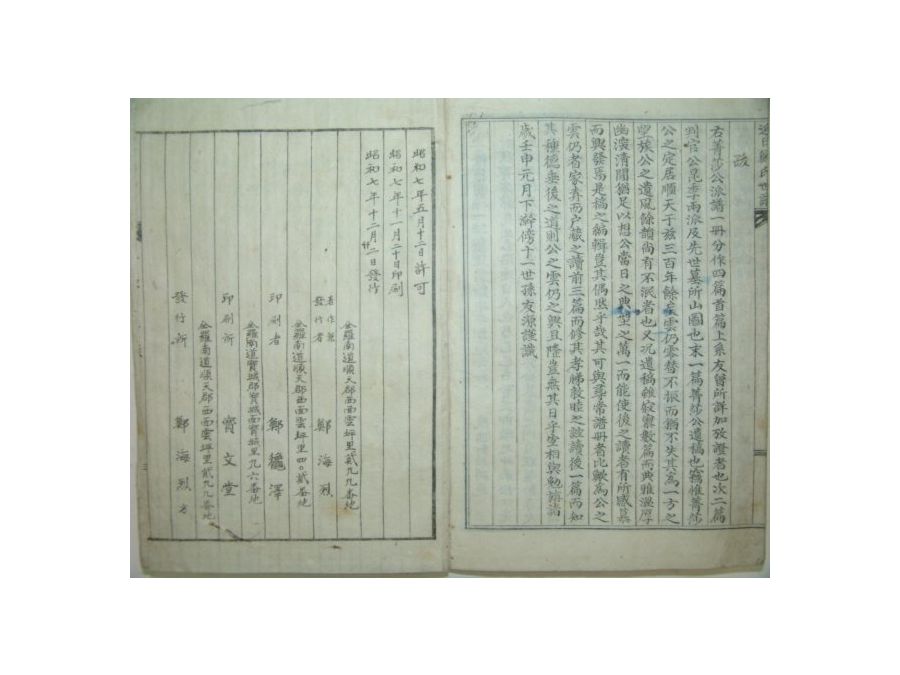 跋
右菁莎公派譜一冊分作四篇首篇上系友曾所詳加攷證者也次二篇
判官公昆季兩派及先世墓所山圖也末一篇菁莎公遺稿也竊惟菁莎
公之定居順天于玆三百年餘矣雲仍零替不振而猶不失其爲一方之
望族公之遺風餘韻尚有不泯者也又况遺稿雖寂寥數篇而典雅溫厚
幽濱清閒猶足以想公當日之典型之萬一而能使後之讀者有所感慕
而興發焉是稿之編輯豈其偶然乎哉其可與尋常譜冊者比歟爲公之
雲仍者家弆而户藏之讀前三篇而修其孝悌敦睦之誼讀後一篇而知
其種德垂後之道則公之雲仍之興且隆豈無其日乎宜相與勉旃
歲壬申元月下澣傍十一世孫友源謹識
昭和七年五月十二日許可
昭和七年十一月二十日印刷
昭和七年十二月二日發行
全羅南道順天郡西面雲坪里貳九九番地
著作兼
發行者 鄭海烈
全羅南道順天郡西面雲坪里四〇貳番地
印刷者 鄭 澤
全羅南道寶城郡寶城面寶城里九六番地
印刷所 寶文堂
全羅南道順天郡西面雲坪里貳九九番地
發行所 鄭海烈方